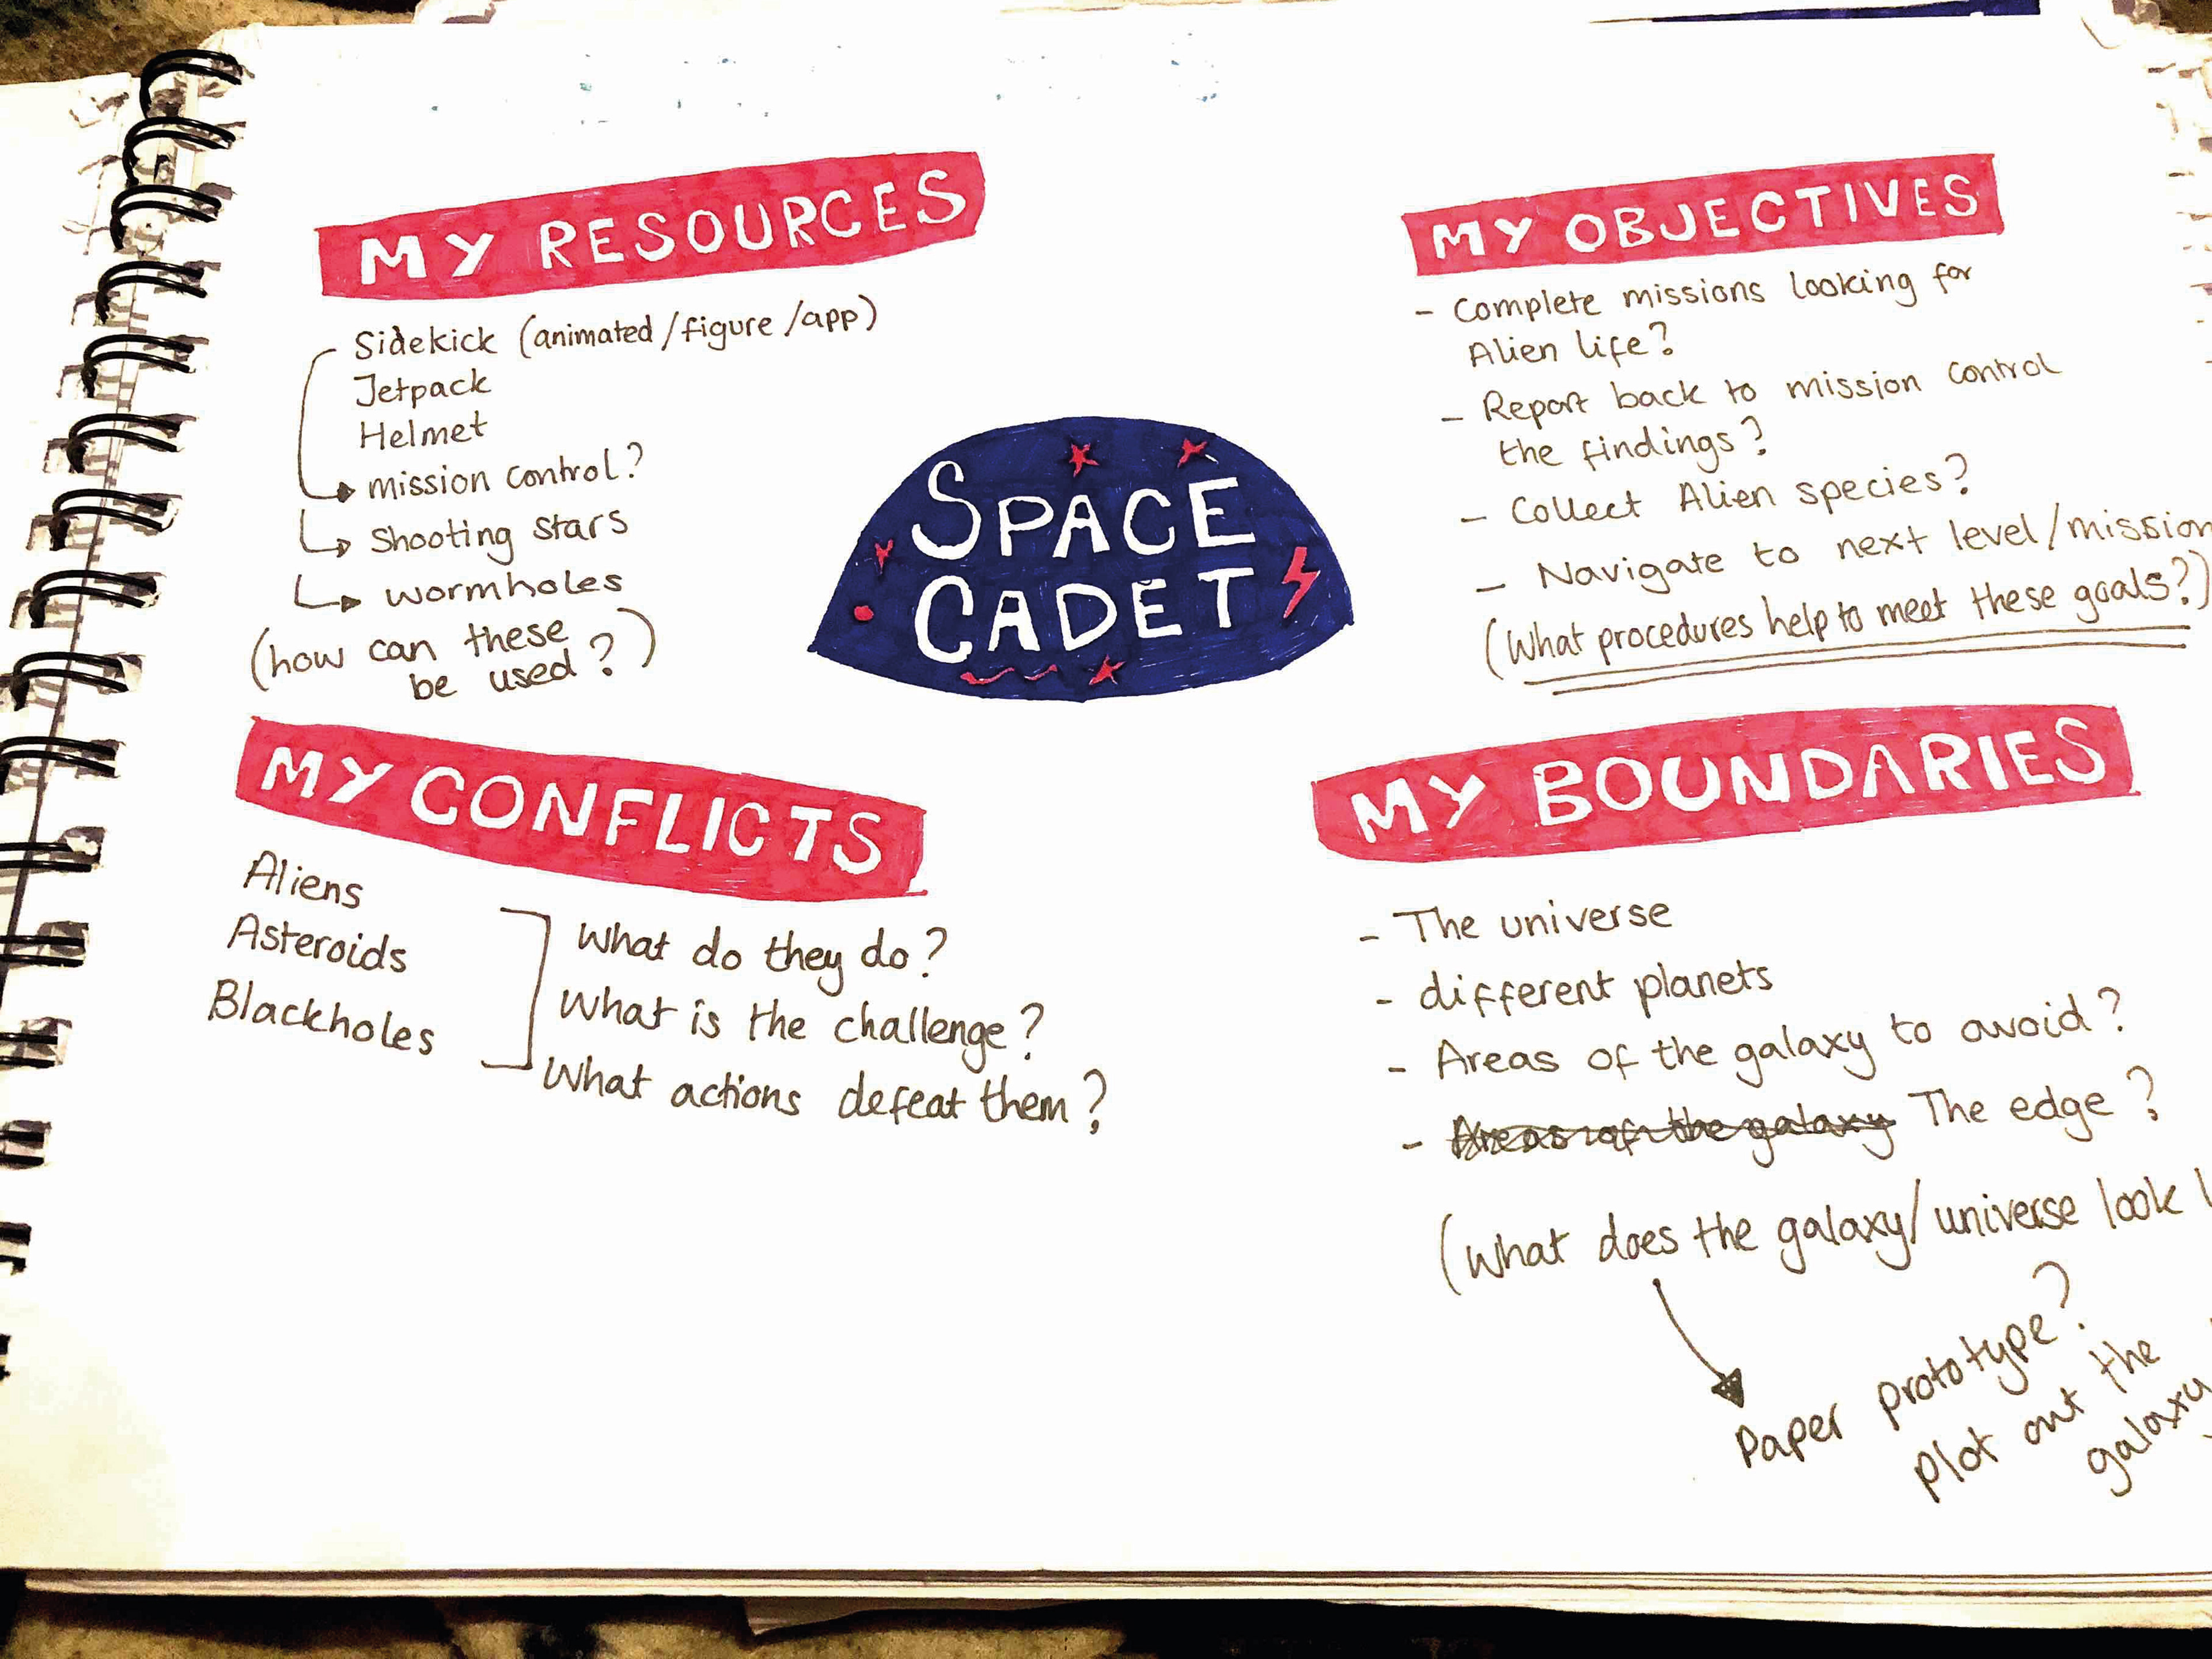 MY RESOURCES
Sidekick (animated/figure/app)
Jetpack
Helmet
mission control?
Shooting stars
wormholes
(how can these
be used?)
SPACE
CADET
MY OBJECTIVES
- Complete missions looking for
Alien life?
- Report back to mission control
the findings?
- Collect Alien species?
- Navigate to next level/mission
(What procedures help to meet these goals?)
MY CONFLICTS
Aliens
Asteroids
Blackholes
What do they do?
What is the challenge?
What actions defeat them?
MY BOUNDARIES
- The universe
- different planets
- Areas of the galaxy to avoid?
- Areas of the galaxy The edge?
(What does the galaxy/universe look
Paper prototype?
Plot out the
galaxy